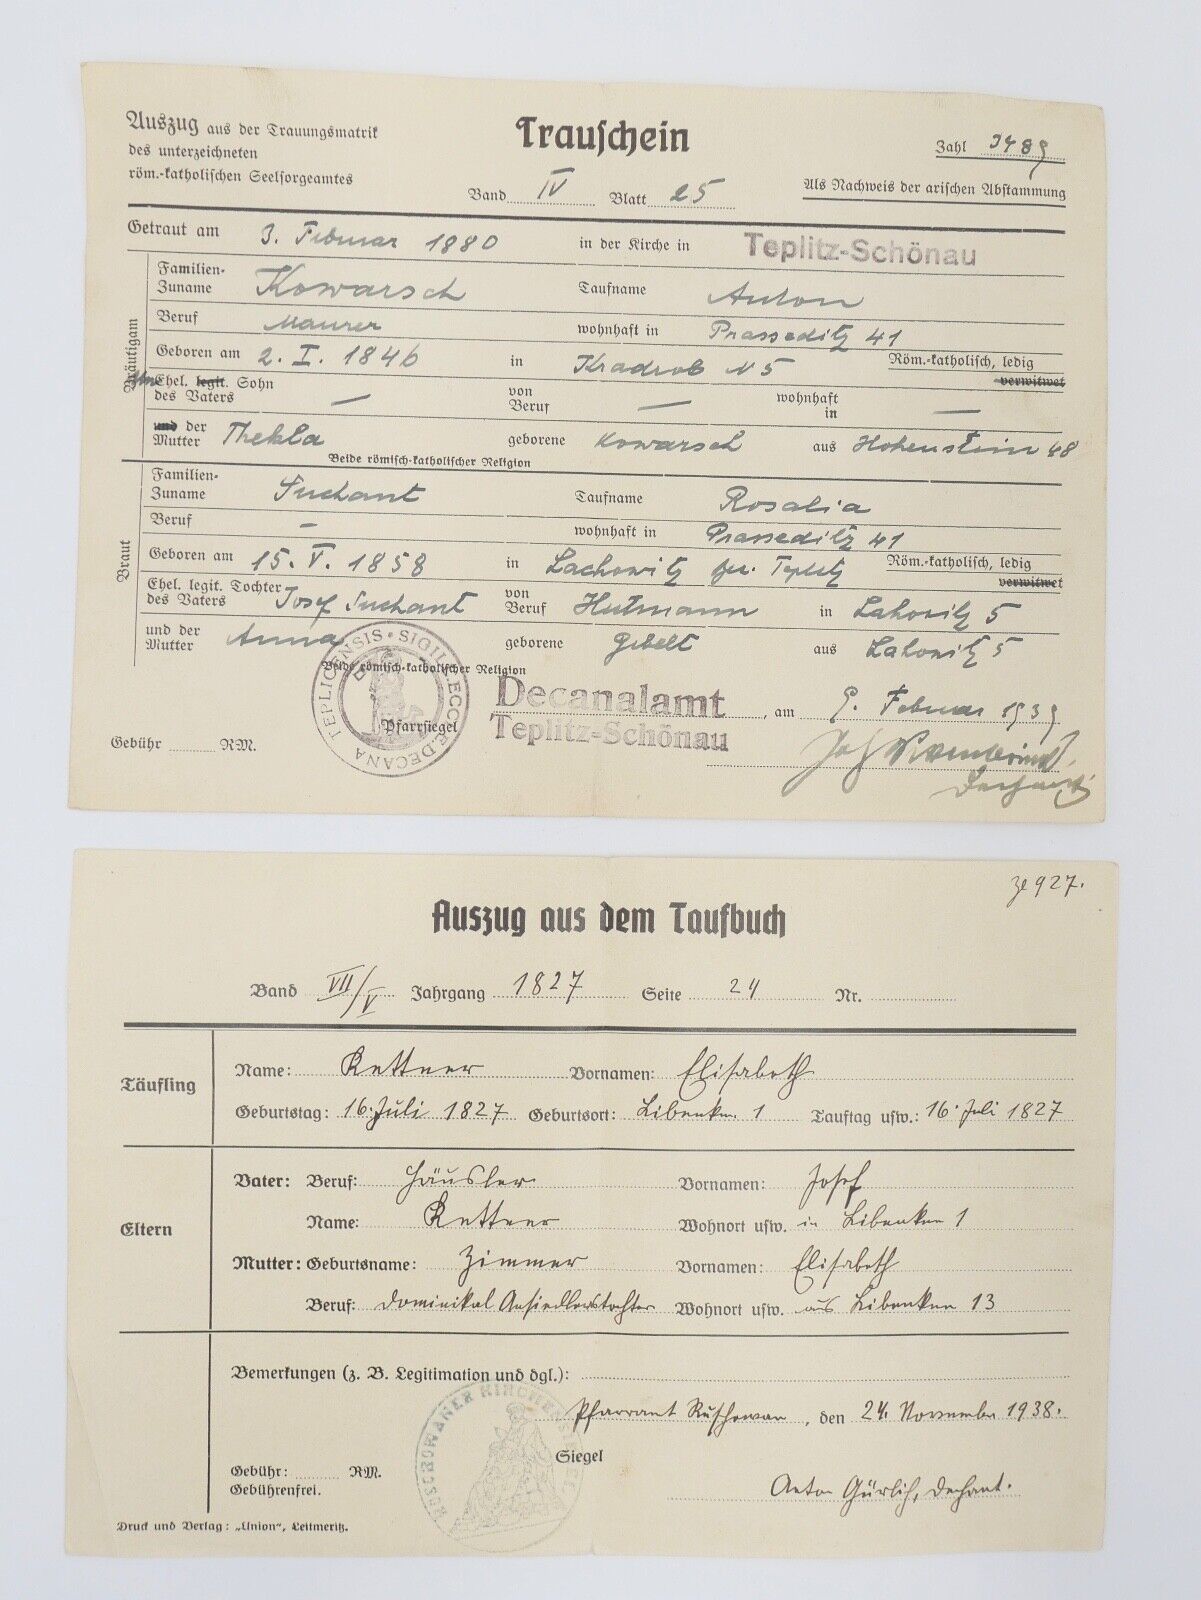 Auszug aus der Trauungsmatrik
des unterzeichneten
röm.-katholischen Seelsorgeamtes
Trauschein
Zahl 3489
Band IV Blatt 25
Als Nachweis der arischen Abstammung
Getraut am 3. Februar 1880 in der Kirche in Teplitz-Schönau
Bräutigam
Familien-Zuname Kowarsch Taufname Anton
Beruf Maurer wohnhaft in Prasseditz 41
Geboren am 2. I. 1846 in Kradrob N 5 Röm.-katholisch, ledig
verwitwet
Ehel. legit. Sohn des Vaters — von Beruf — wohnhaft in —
und der Mutter Thekla geborene Kowarsch aus Hohenstein 48
Beide römisch-katholischer Religion
Braut
Familien-Zuname Suchant Taufname Rosalia
Beruf — wohnhaft in Prasseditz 41
Geboren am 15. V. 1858 in Lachowitz bez. Teplitz Röm.-katholisch, ledig
verwitwet
Ehel. legit. Tochter des Vaters Josef Suchant von Beruf Hutmann in Lahowitz 5
und der Mutter Anna geborene Gebelt aus Lahowitz 5
Beide römisch-katholischer Religion
SIGILL. ECCL. DECANA. TEPLICENSIS
Pfarrsiegel
Decanalamt
Teplitz-Schönau
, am 9. Februar 1939
Gebühr RM.
Dechant
Zl 927.
Auszug aus dem Taufbuch
Band VII/V Jahrgang 1827 Seite 24 Nr.
Täufling
Name: Kettner Vornamen: Elisabeth
Geburtstag: 16. Juli 1827 Geburtsort: Libenken 1 Tauftag usw.: 16. Juli 1827
Eltern
Vater: Beruf: Häusler Vornamen: Josef
Name: Kettner Wohnort usw. in Libenken 1
Mutter: Geburtsname: Zimmer Vornamen: Elisabeth
Beruf: Dominikal Ansiedlerstochter Wohnort usw. aus Libenken 13
Bemerkungen (z. B. Legitimation und dgl.):
Pfarramt Ruschowan, den 24. November 1938.
RUSCHOWANER KIRCHEN SIEGEL
Siegel
Gebühr: RM.
Gebührenfrei.
Anton Gürlich, Dechant.
Druck und Verlag: „Union", Leitmeritz.